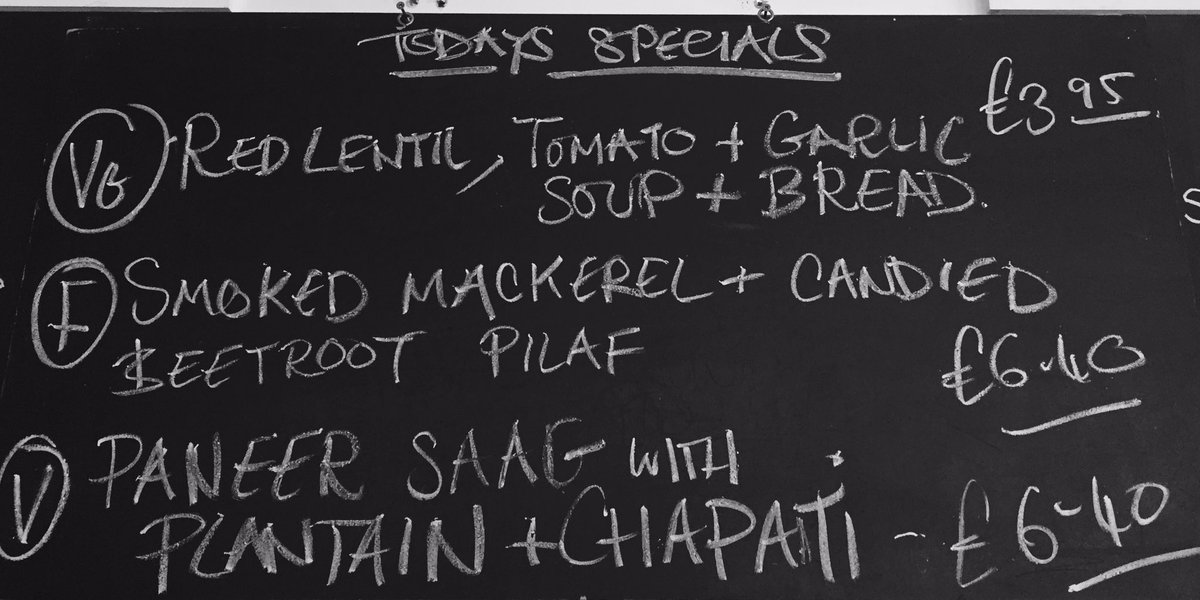 TODAYS SPECIALS
VG RED LENTIL, TOMATO + GARLIC £3 95
SOUP + BREAD.
F SMOKED MACKEREL + CANDIED
BEETROOT PILAF £6.40
V PANEER SAAG WITH
PLANTAIN + CHAPATI - £6-40